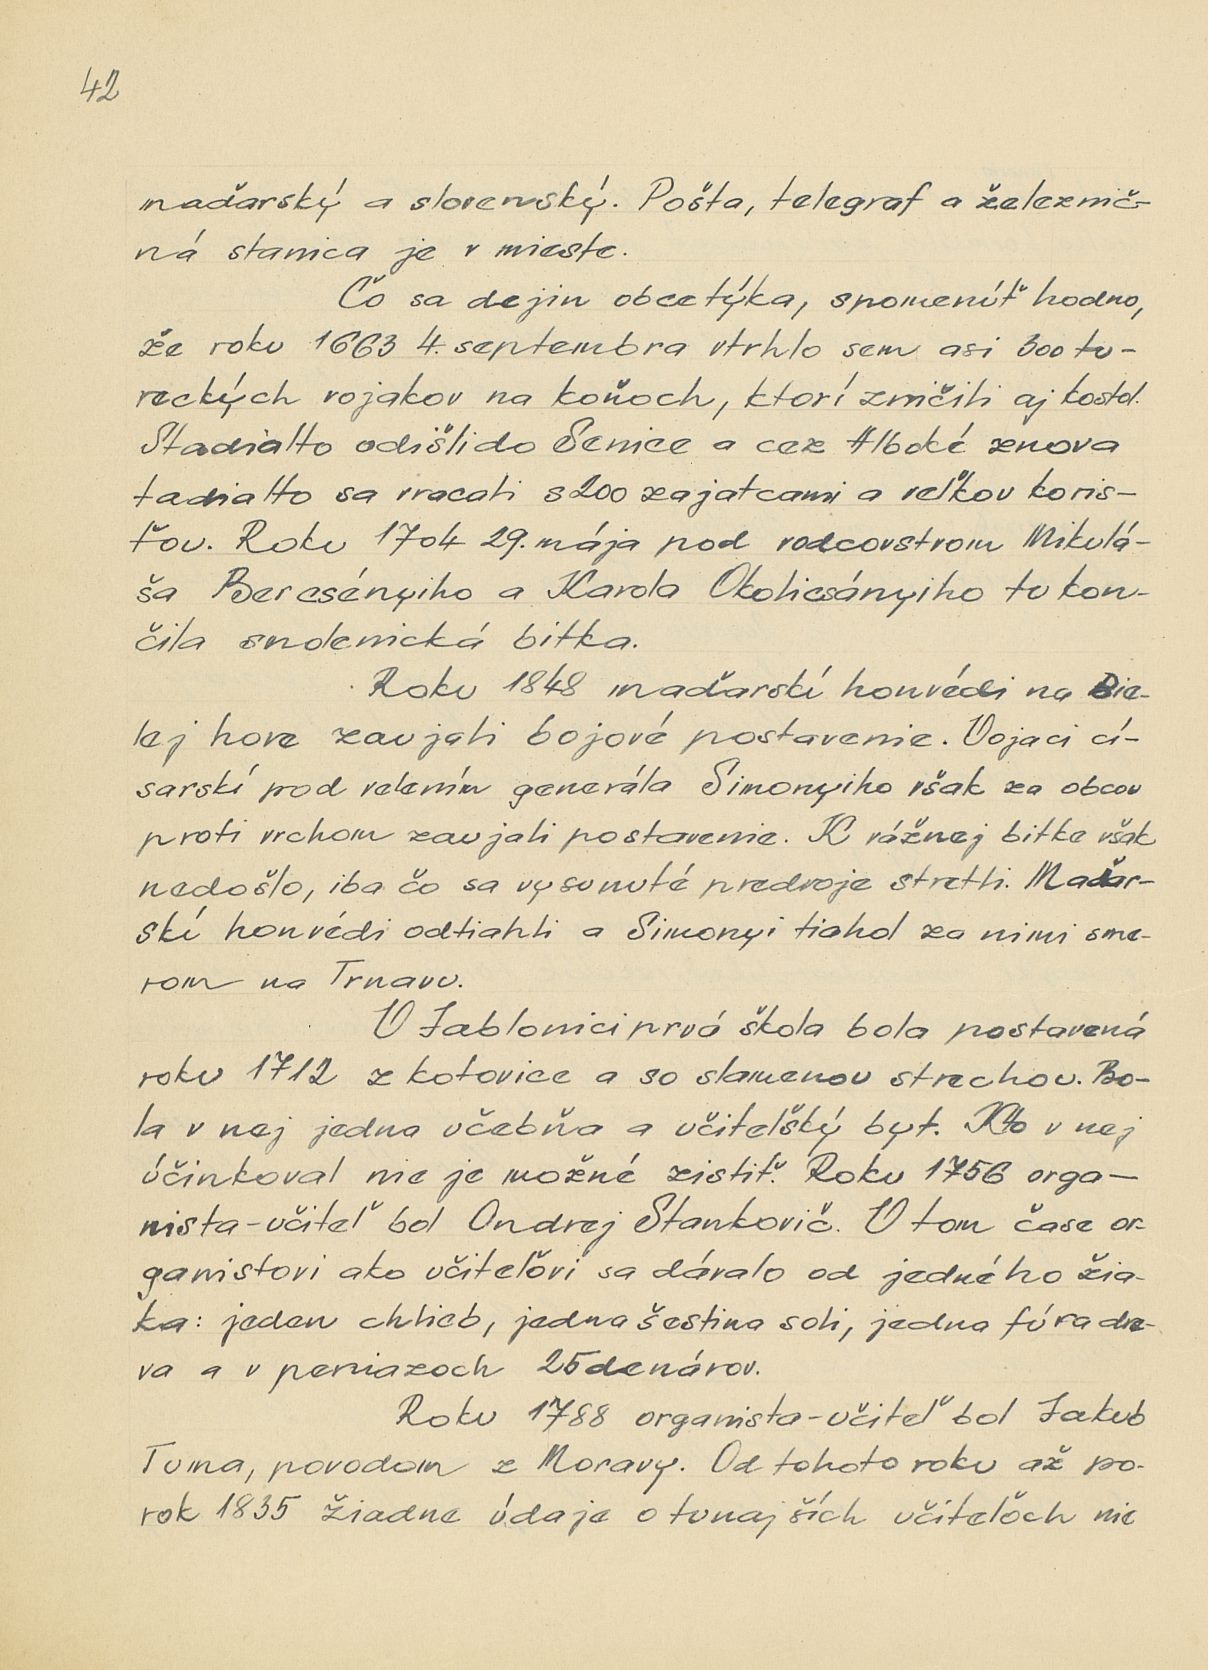 42
maďarský a slovenský. Pošta, telegraf a železnič-
ná stanica je v mieste.
Čo sa dejín obce týka, spomenúť hodno,
že roku 1663 4. septembra vtrhlo sem asi 300 tu-
reckých vojakov na koňoch, ktorí zničili aj kostol.
Stadialto odišli do Senice a cez Hlboké znova
tadialto sa vracali s 200 zajatcami a veľkou koris-
ťou. Roku 1704 29. mája pod vodcovstvom Mikulá-
ša Bercsényiho a Karola Okolicsányiho tu kon-
čila smolenická bitka.
Roku 1848 maďarskí honvédi na Bie-
lej hore zaujali bojové postavenie. Vojaci cí-
sarskí pod velením generála Simonyiho však za obcou
proti vrchom zaujali postavenie. K vážnej bitke však
nedošlo, iba čo sa vysunuté predvoje stretli. Maďar-
skí honvédi odtiahli a Simonyi tiahol za nimi sme-
rom na Trnavu.
V Jablonici prvá škola bola postavená
roku 1712 z kotovice a so slamenou strechou. Bo-
la v nej jedna učebňa a učiteľský byt. Kto v nej
účinkoval nie je možné zistiť. Roku 1756 orga-
nista-učiteľ bol Ondrej Stankovič. V tom čase or-
ganistovi ako učiteľovi sa dávalo od jedného žia-
ka: jeden chlieb, jedna šestina soli, jedna fúra dre-
va a v peniazoch 25 denárov.
Roku 1788 organista-učiteľ bol Jakub
Tuma, povodom z Moravy. Od tohoto roku až po-
rok 1835 žiadne údaje o tunajších učiteľoch nie